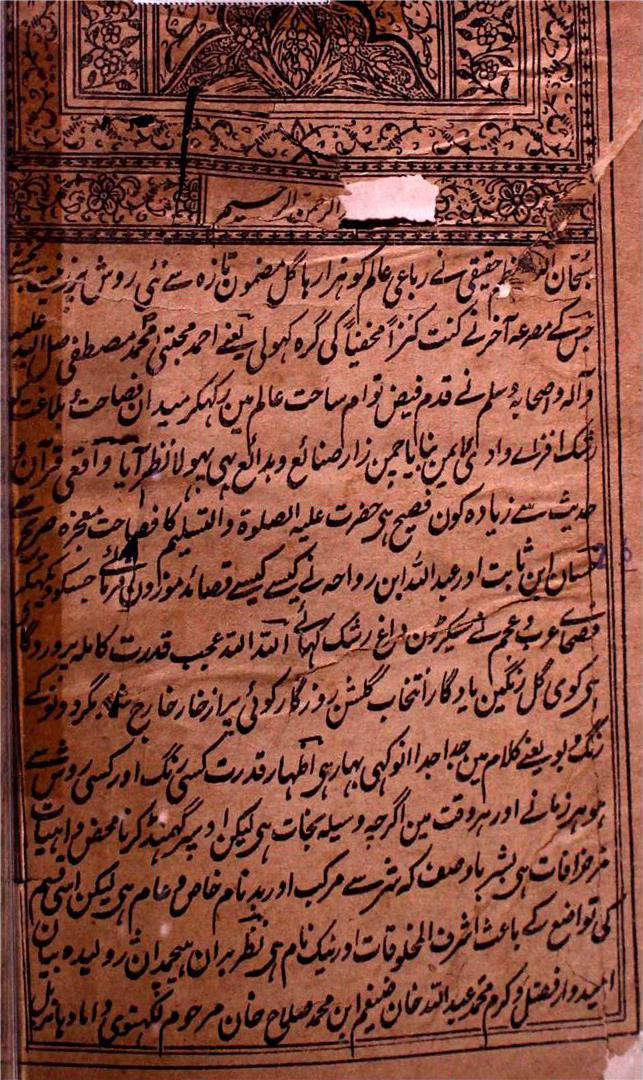 الرحمن الرحیم
سبحان اللہ ناظم حقیقی نے رباعی عالم کو ہزارہا گل مضمون تازہ سے نئی روش پر زینت بخشی
جس کے مصرعہ آخر نے کنت کنزاً مخفیاً کی گرہ کہولی یعنے احمد مجتبیٰ محمد مصطفی صلی اللہ علیہ
وآلہ واصحابہ وسلم نے قدم فیض توام ساحت عالم مین رکہکر میدان فصاحت و بلاغت کو
رشک افزاے وادی ایمن بنایا چمن زار صنائع و بدائع بہی پہولا نظر آیا واقعی قرآن و
حدیث سے زیادہ کون فصیح ہی حضرت علیہ الصلوۃ والتسلیم کا فصاحت معجزہ صریح ہے
حسان ابن ثابت اور عبداللہ ابن رواحہ نے کیسے کیسے قصائد موزون فرمائے جسکو دیکہکر
فصحاے عرب و عجم نے سیکڑون داغ رشک کہائے اللہ اللہ عجب قدرت کاملہ پروردگار
ہی کوی گل رنگین یادگار انتخاب گلشن روزگار کوئی پر از خار خارج مگر دونو کے
رنگ و بو یعنے کلام مین جدا جدا انوکہی بہار ہی اظہار قدرت کسی رنگ اور کسی روش سے
ہو ہر زمانے اور ہر وقت مین اگرچہ وسیلہ نجات ہی لیکن اوسپر گہمنڈ کرنا محض واہیات
مزخرفات ہی بشر باوصف کہ شر سے مرکب اور بدنام خاص و عام ہی لیکن اسی قسم
کی تواضع کے باعث اشرف المخلوقات اور نیک نام ہی نظر بران ہیچمدان ژولیدہ بیان
امیدوار فضل و کرم محمد عبداللہ خان ضیغم ابن محمد صلاح خان مرحوم لکہنوی و آباد